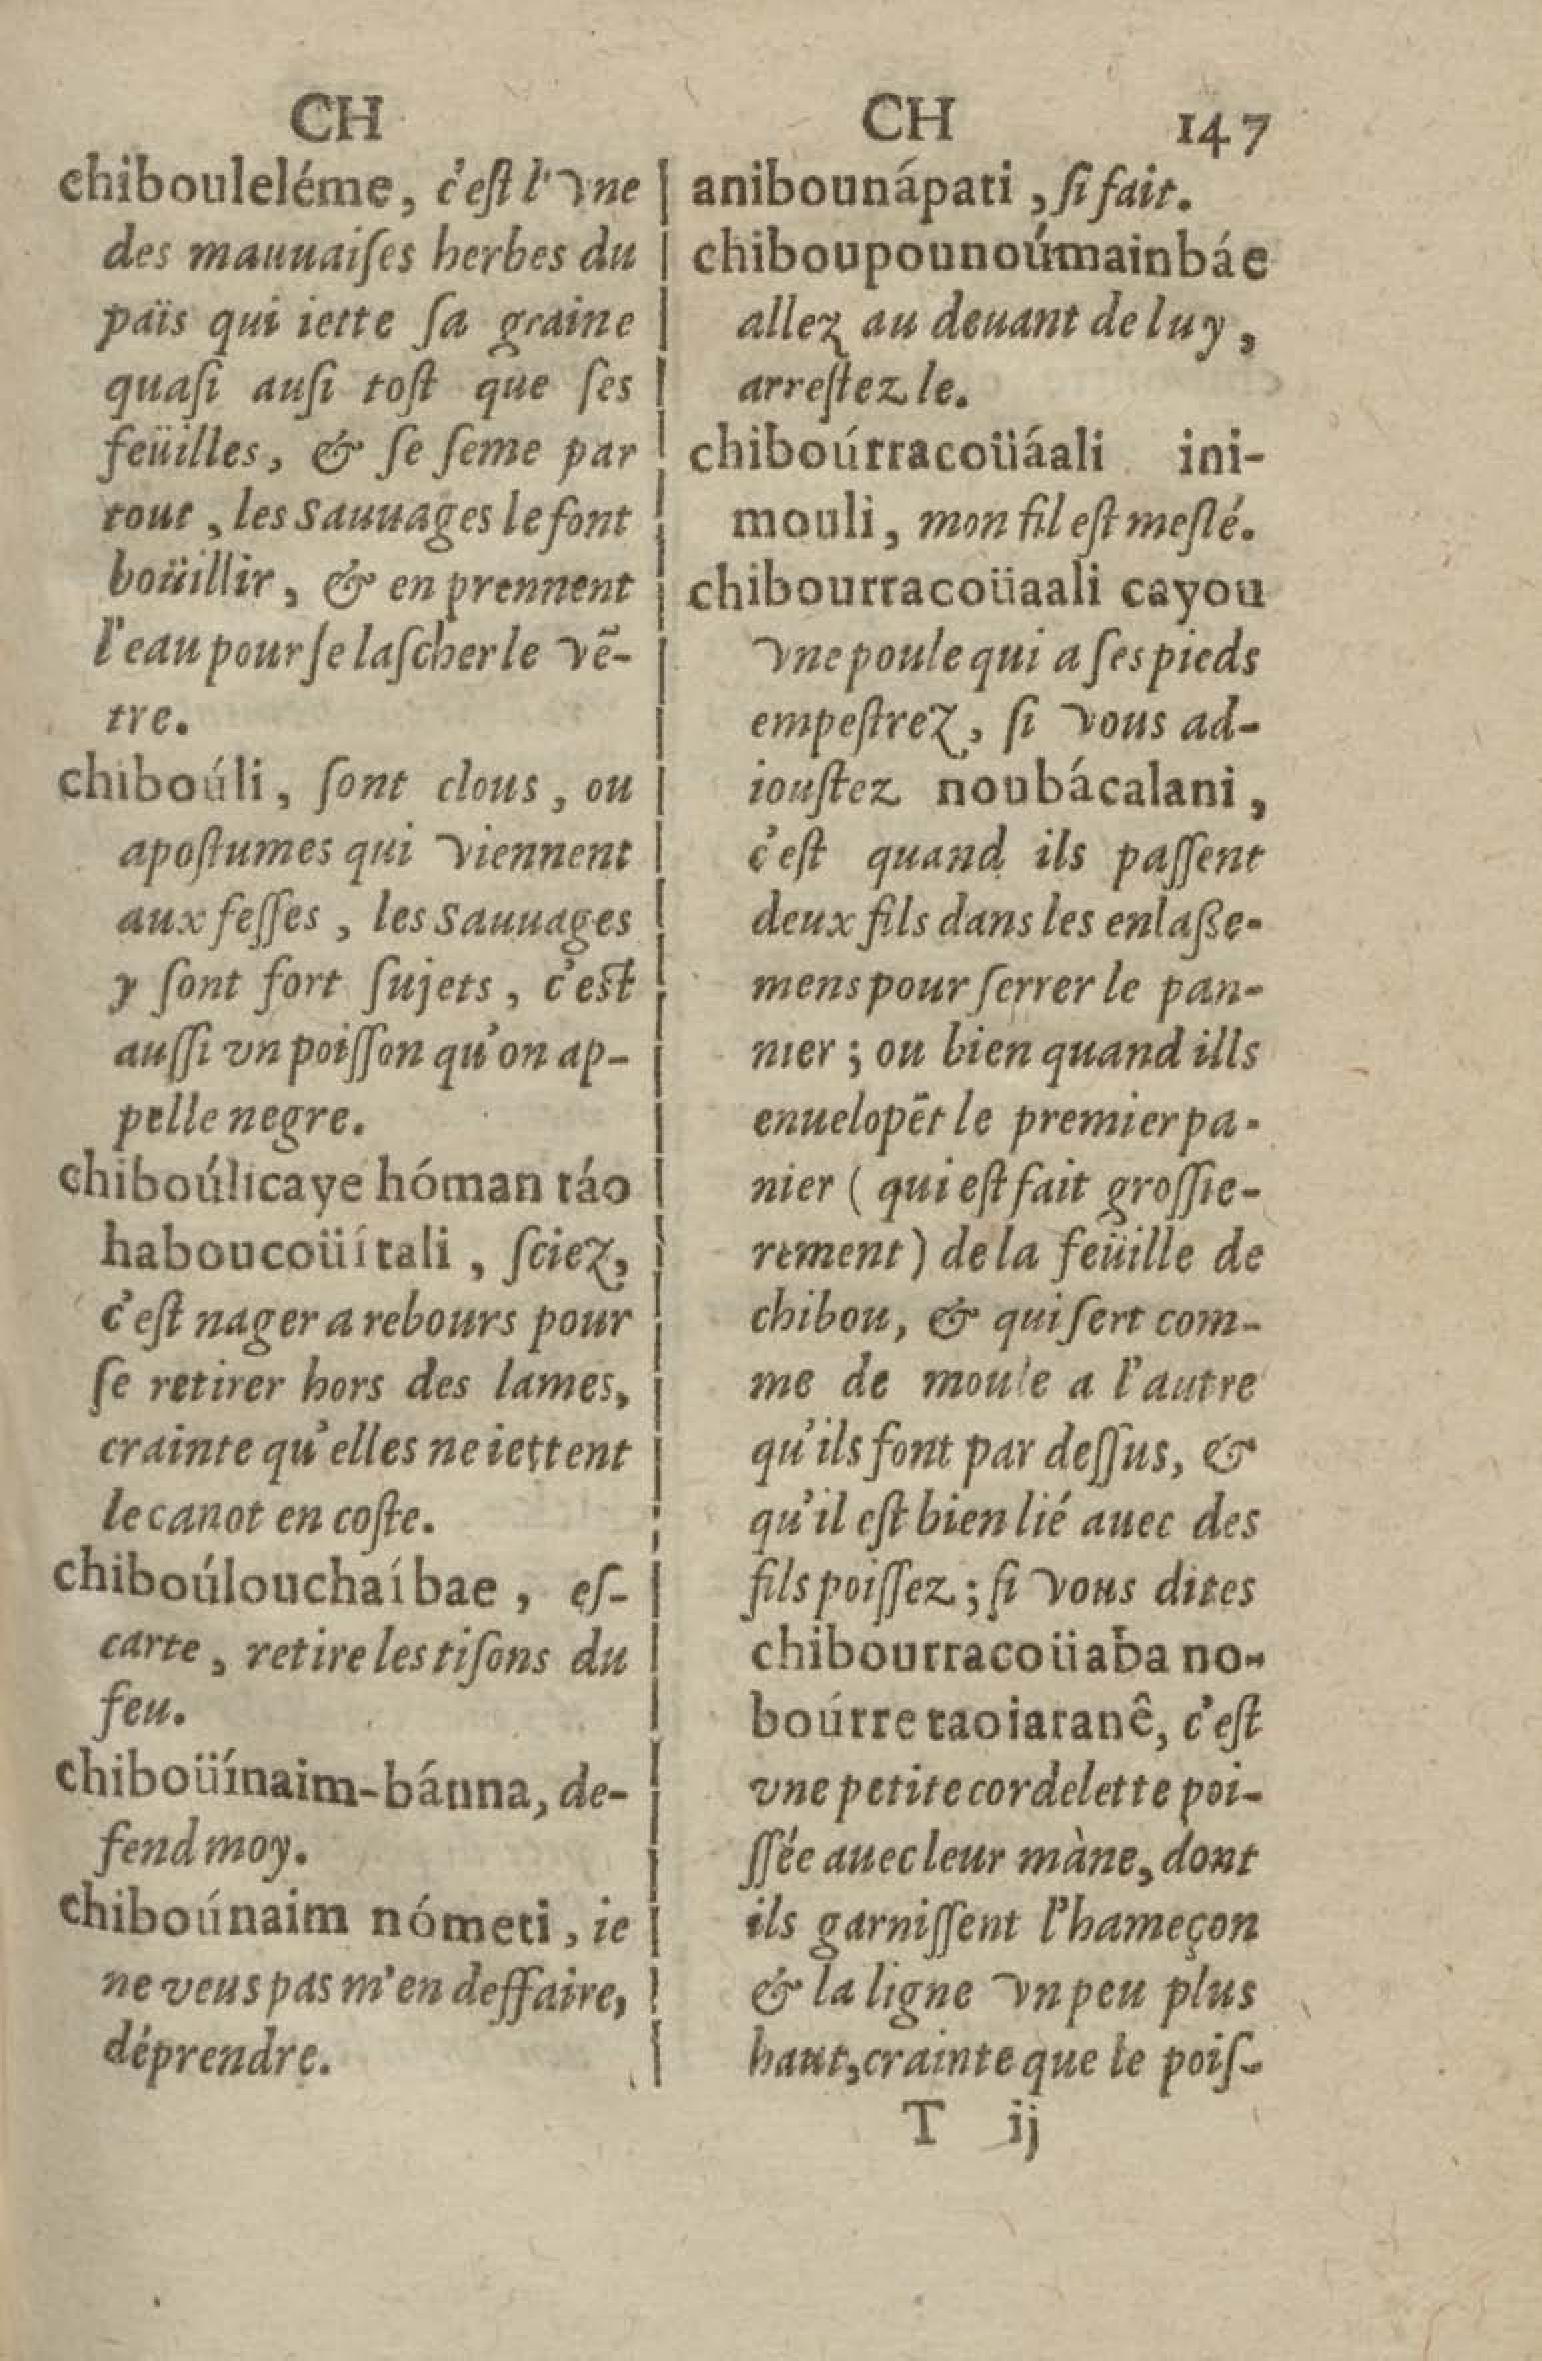 CH
chibouleléme, c'eſt l'vne
des mauuaiſes herbes du
païs qui iette ſa graine
quaſi auſi toſt que ſes
feüilles, & ſe ſeme par
tout, les Sauuages le font
boüillir, & en prennent
l'eau pour ſe laſcher le vē-
tre.
chiboúli, ſont clous, ou
apoſtumes qui viennent
aux feſſes, les Sauuages
y ſont fort ſujets, c'eſt
auſſi vn poiſſon qu'on ap-
pelle negre.
chiboúlicaye hóman táo
haboucoüítali, ſciez,
c'eſt nager a rebours pour
ſe retirer hors des lames,
crainte qu'elles ne iettent
le canot en coſte.
chiboúlouchaíbae, eſ-
carte, retire les tiſons du
feu.
chiboüínaim-bánna, de-
fend moy.
chiboúnaim nómeti, ie
ne veus pas m'en deffaire,
déprendre.
CH 147
anibounápati, ſi fait.
chiboupounoúmainbáe
allez au deuant de luy,
arreſtez le.
chiboúrracoüáali ini-
mouli, mon fil eſt meſlé.
chibourracoüaali cayou
vne poule qui a ſes pieds
empeſtrez, ſi vous ad-
iouſtez noubácalani,
c'eſt quand ils paſſent
deux fils dans les enlaße-
mens pour ſerrer le pan-
nier; ou bien quand ills
enuelopēt le premier pa-
nier (qui eſt fait groſſie-
rement) de la feüille de
chibou, & qui ſert com-
me de moule a l'autre
qu'ils font par deſſus, &
qu'il eſt bien lié auec des
fils poiſſez; ſi vous dites
chibourracoüaba no-
boúrre taoiaranê, c'eſt
vne petite cordelette poi-
ſſée auec leur màne, dont
ils garniſſent l'hameçon
& la ligne vn peu plus
haut, crainte que le poiſ-
T ij